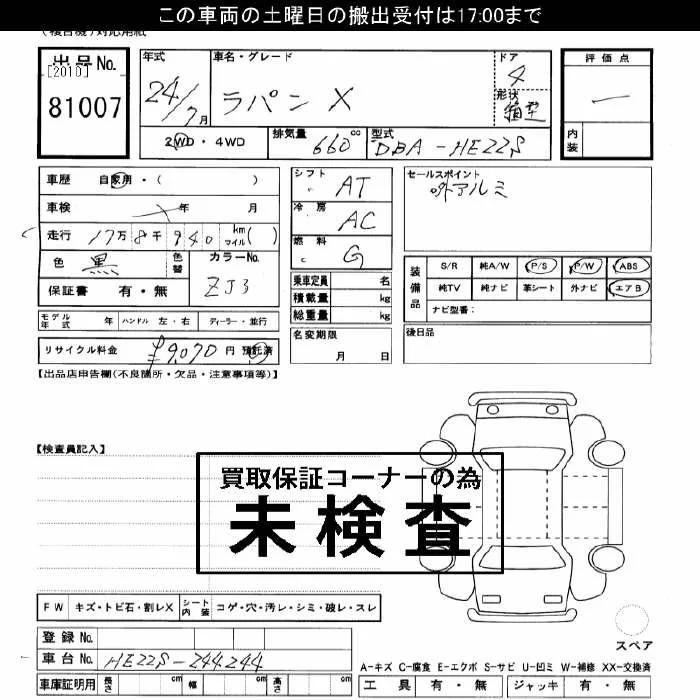 この車両の土曜日の搬出受付は17:00まで
(複合機)対応用紙
出品No.
[2010]
81007
年式 24/7月
車名・グレード ラパン X
ドア 4
形状 箱型
評価点 —
内装
2WD・4WD
排気量 660cc
型式 DBA-HE22S
車歴 自家用・( )
車検 年 月
走行 17万8千940 km マイル( )
色 黒 色替 カラーNo. ZJ3
保証書 有・無
モデル年式 年 ハンドル 左・右 ディーラー・並行
リサイクル料金 ¥9,070円 預託済
シフト AT
冷房 AC
燃料 G
乗車定員 名
積載量 kg
総重量 kg
名変期限
月 日
セールスポイント
外アルミ
装備品
S/R 純A/W P/S P/W ABS
純TV 純ナビ 革シート 外ナビ エアB
ナビ型番:
後日品
【出品店申告欄(不良箇所・欠品・注意事項等)】
【検査員記入】
買取保証コーナーの為
未検査
FW キズ・トビ石・割レX シート内装 コゲ・穴・汚レ・シミ・破レ・スレ
登録No.
車台No. HE22S-244244
車庫証明用 長さ cm 幅 cm 高さ cm
スペア
A-キズ C-腐食 E-エクボ S-サビ U-凹ミ W-補修 XX-交換済
工具 有・無 ジャッキ 有・無